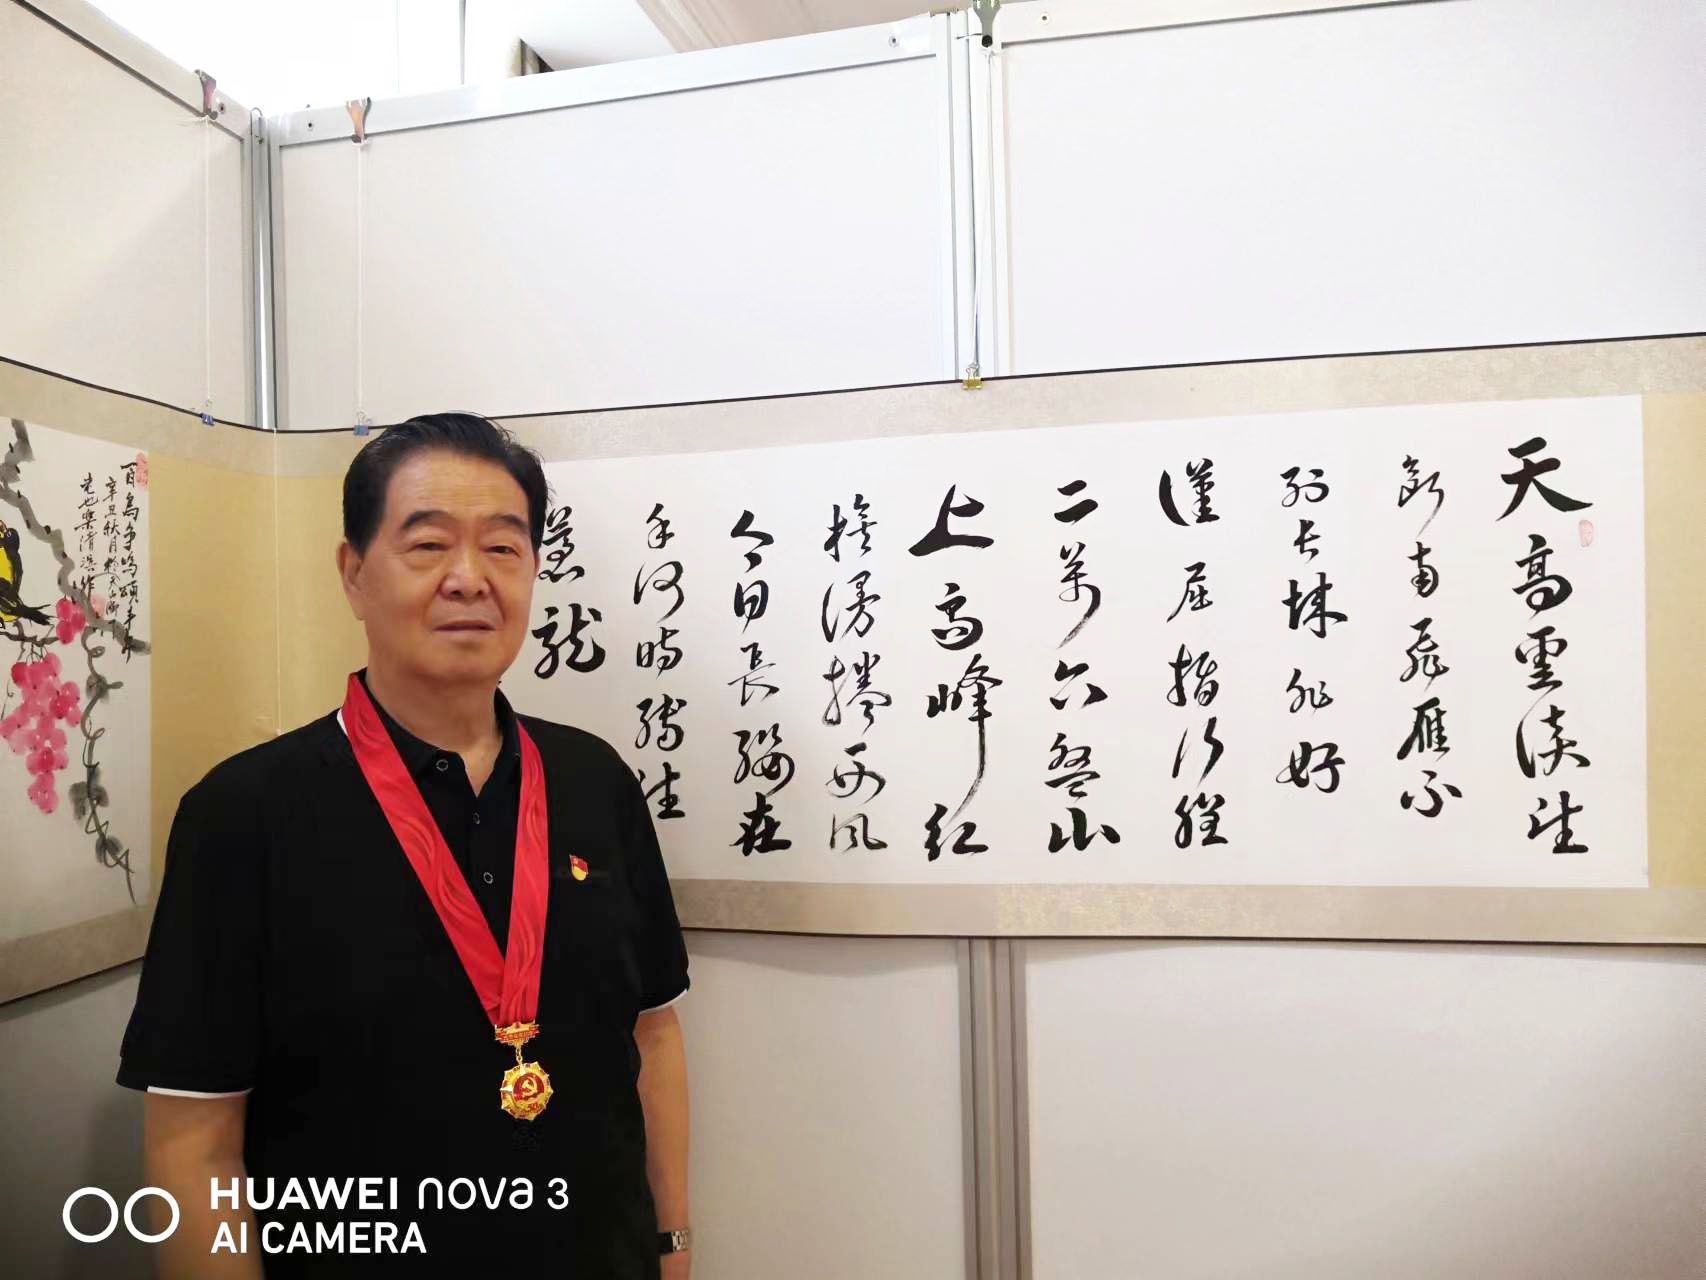 天高雲淡望
断南飛雁不
到长城非好
漢屈指行程
二萬六盤山
上高峰红
旗漫捲西风
今日長纓在
手何時縛住
蒼龍
百鳥争鸣頌
辛丑秋月於天山
老也樂清洪作
HUAWEI nova 3
AI CAMERA